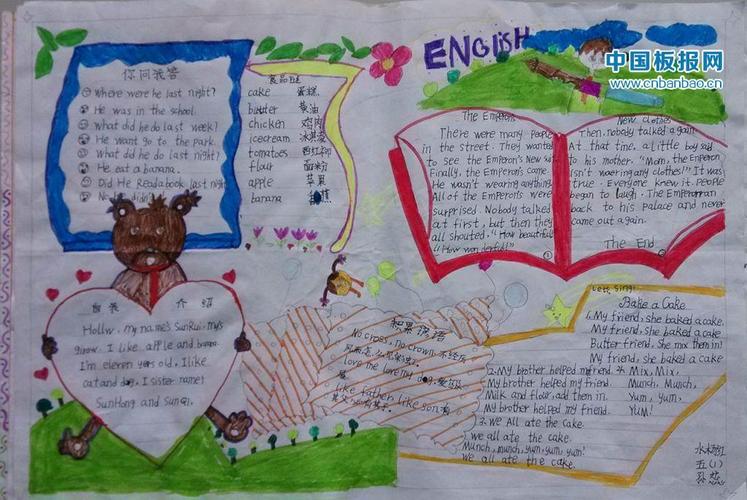 ENGLISH
中国板报网
www.cnbanbao.cn
你问我答
Where were he last night?
He was in the school.
What did he do last week?
He want go to the park.
What did he do last night?
He eat a banana.
Did He Readabook last night
No he didn't
食品
cake 蛋糕
butter 黄油
chicken 鸡肉
icecream 冰淇淋
tomatoes 西红柿
flour 面粉
apple 苹果
banana 蕉
The Emperors
There were many People
in the street. They wanted
to see the Emperor's New suit
Finally, the Emperor's came
He wasn't wearing anything
All of the Emperor's were
surprised. Nobody talked
at first, but then they
all shouted, "How beautiful"
"How wonderful!"
①
New clothes
Then, nobody talked again
At that time, a little boy said
to his mother. "Mom, the Emperor
Isn't waering any clothes!" It was
true. Everyone knew it. People
began to laugh, The Emperor ran
back to his Palace and never
came out again.
The End
②
自我介绍
Hollw, my name's SunRui, my's
girow. I like affle and banana
I'm eleren yers old, I like
cat and dog. I sister name:
SunHong and SunQi.
和果谚语
No cross, no crown 不经历
风雨怎么见彩虹.
love me love my dog, 爱屋及
屋
like father like son 有
其父必有其子.
Let's Sing!
Bake a Cake
1. My friend, she baked a cake.
My friend, she baked a cake
Butter friend, She mix them in!
My friend, she baked a cake
2. My brother helped my friend. * Mix, Mix,
My brother helped my friend. Munch, Munch,
Milk and flour, add them in. Yum, yum,
My brother helped my friend. YUM!
3. we all ate the cake.
we all ate the cake.
Munch, munch, yum, yum, yum!
we all ate the cake.
五(1)